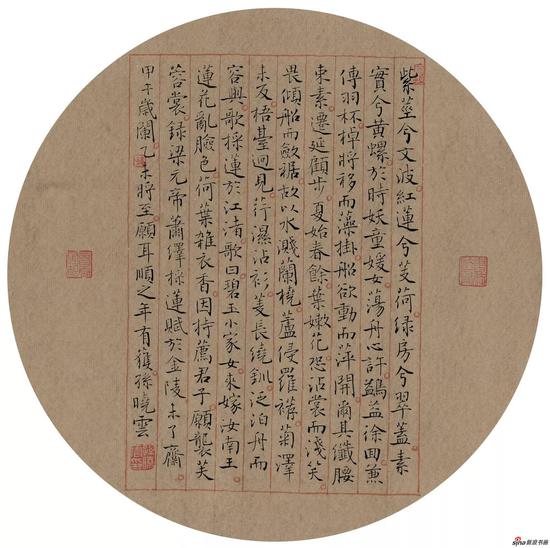 紫莖兮文波紅蓮兮芰荷绿房兮翠蓋素
實兮黄螺於時妖童媛女蕩舟心許鷁徐回兼
傳羽杯棹將移而藻掛船欲動而萍開爾其纖腰
束素遷延顧步夏始春餘葉嫩花恐沾裳而淺笑
畏傾船而歛裾故以水濺蘭橈蘆侵羅襪菊澤
未反梧臺迥見荇濕沾衫菱長繞釧泛泊舟而
容與歌採蓮於江渚歌曰碧玉小家女來嫁汝南王
蓮花亂臉色荷葉雜衣香因持薦君子願襲芙
蓉裳録梁元帝蕭繹採蓮賦於金陵未了齋
甲午歲闌乙未將至願耳順之年有獲孫曉雲
sina新浪书画